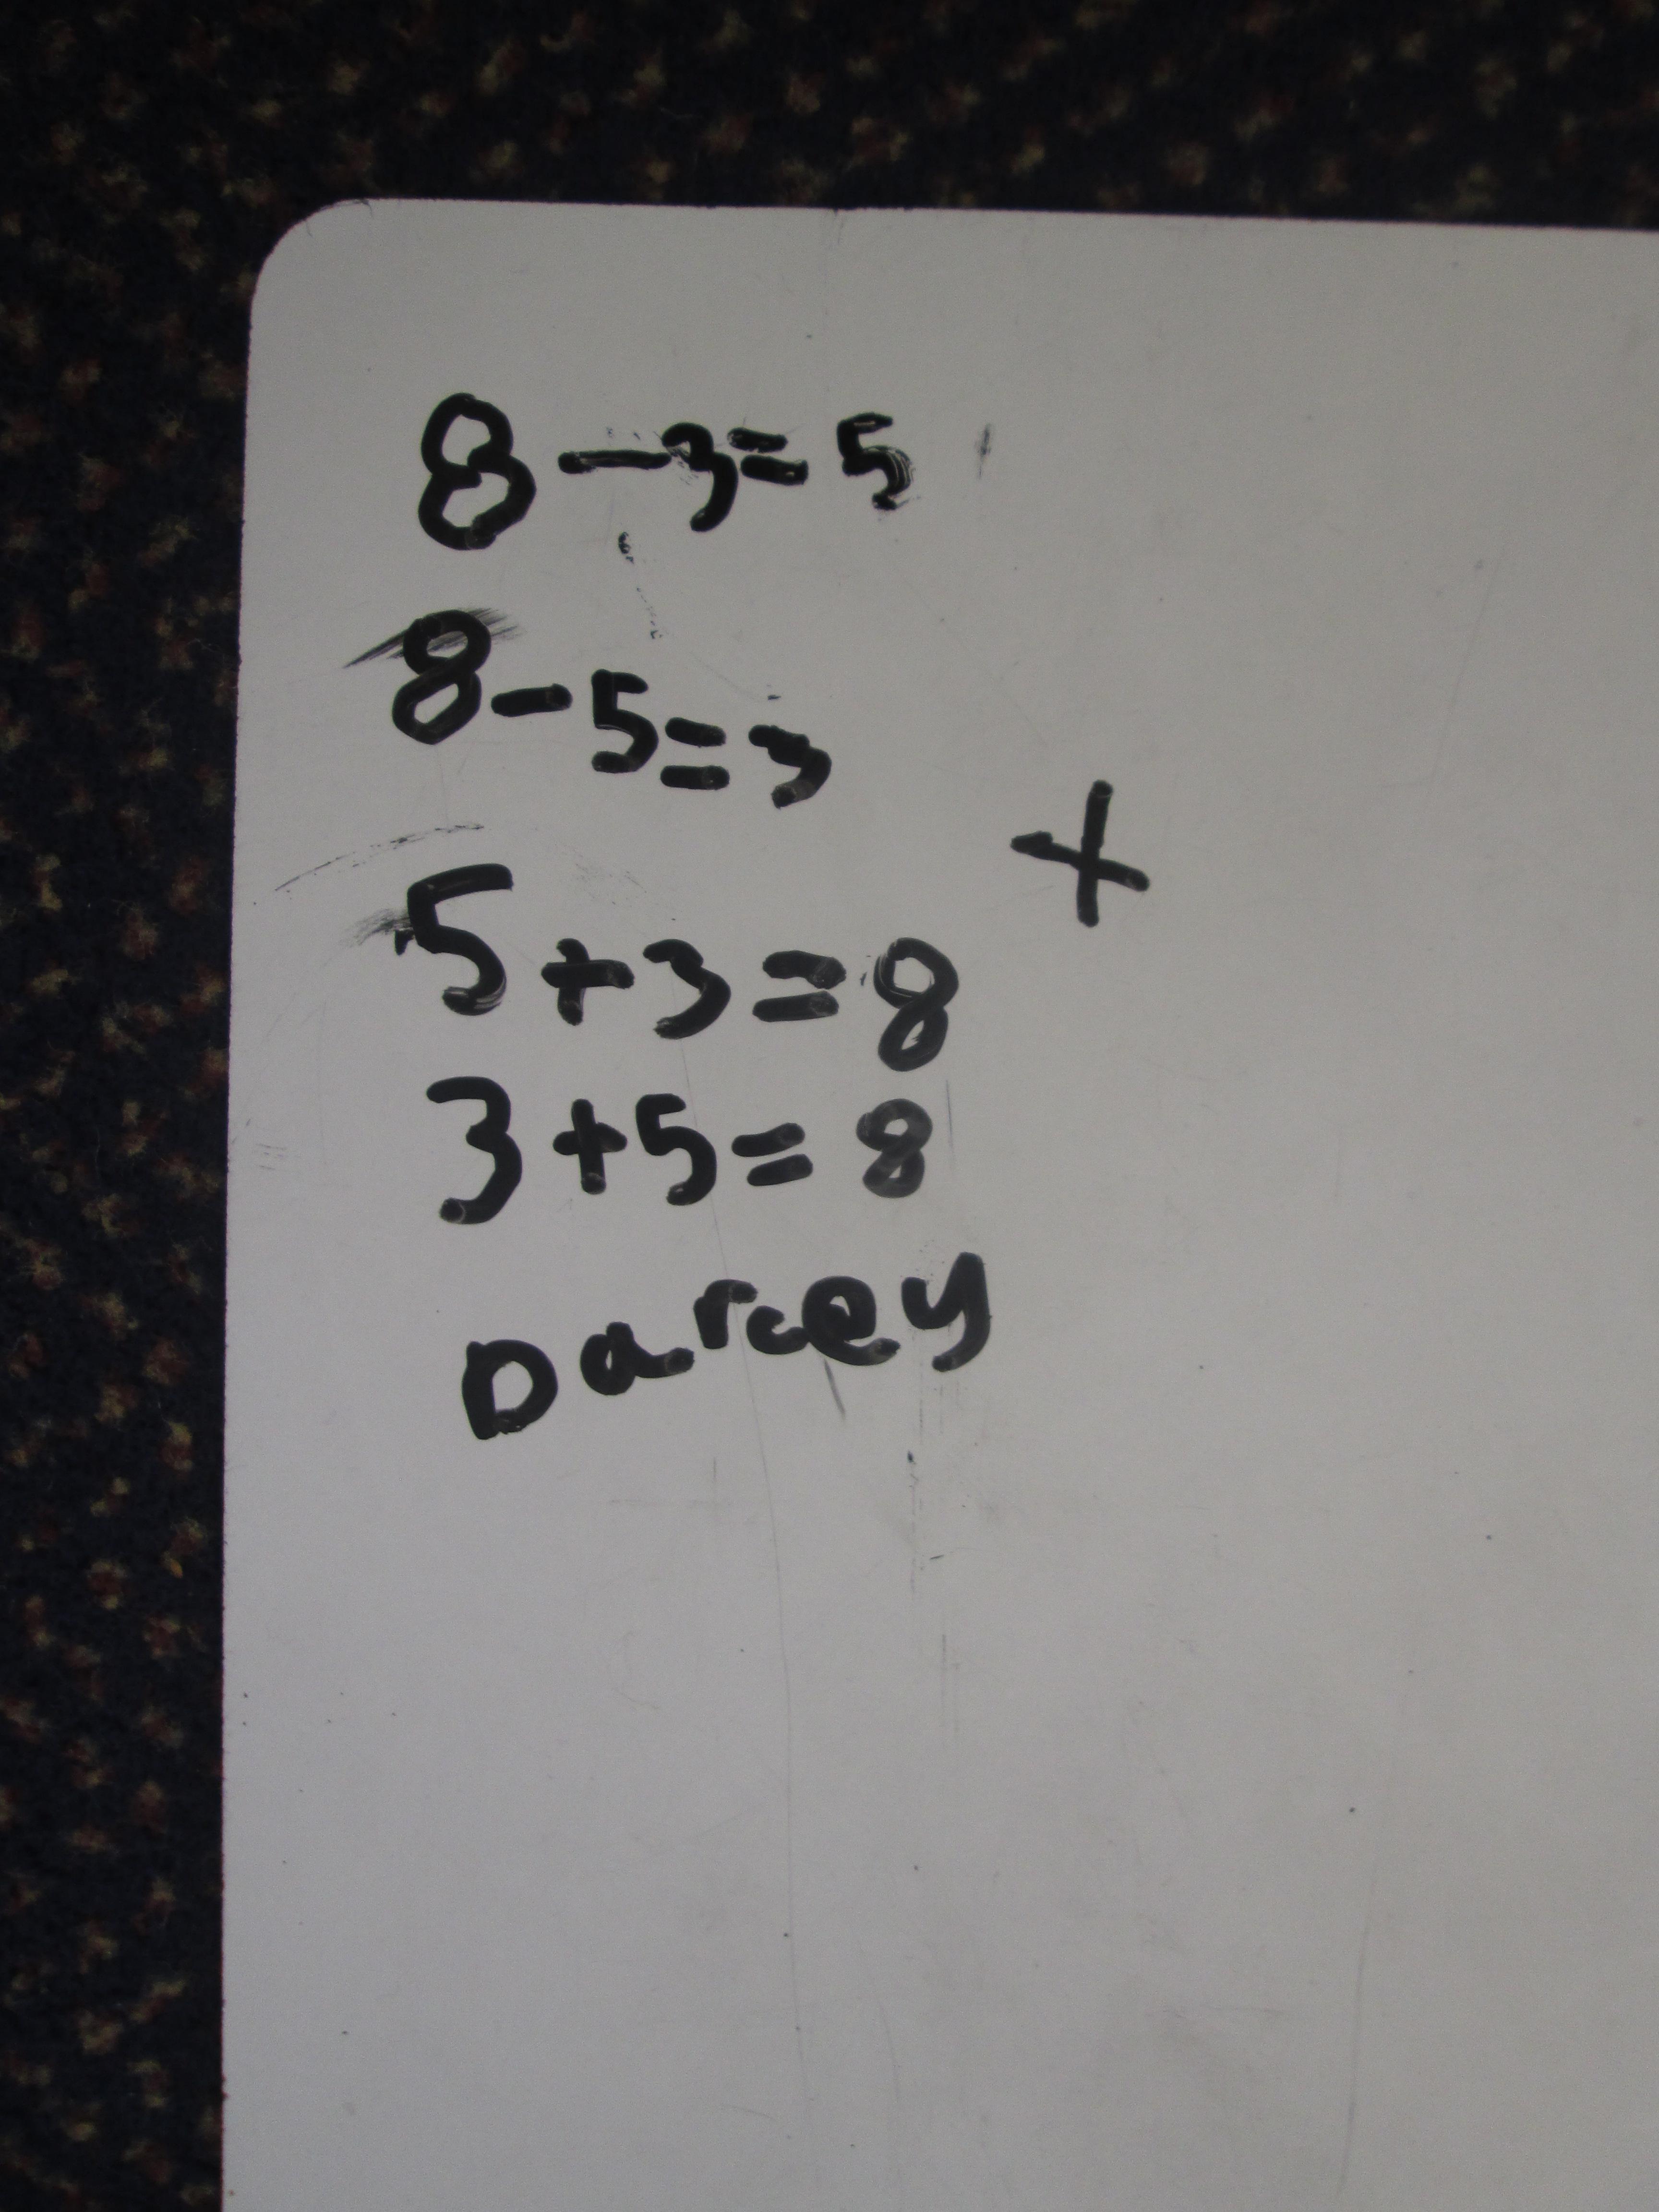 8-3=5
8-5=3
+
5+3=8
3+5=8
Darcey